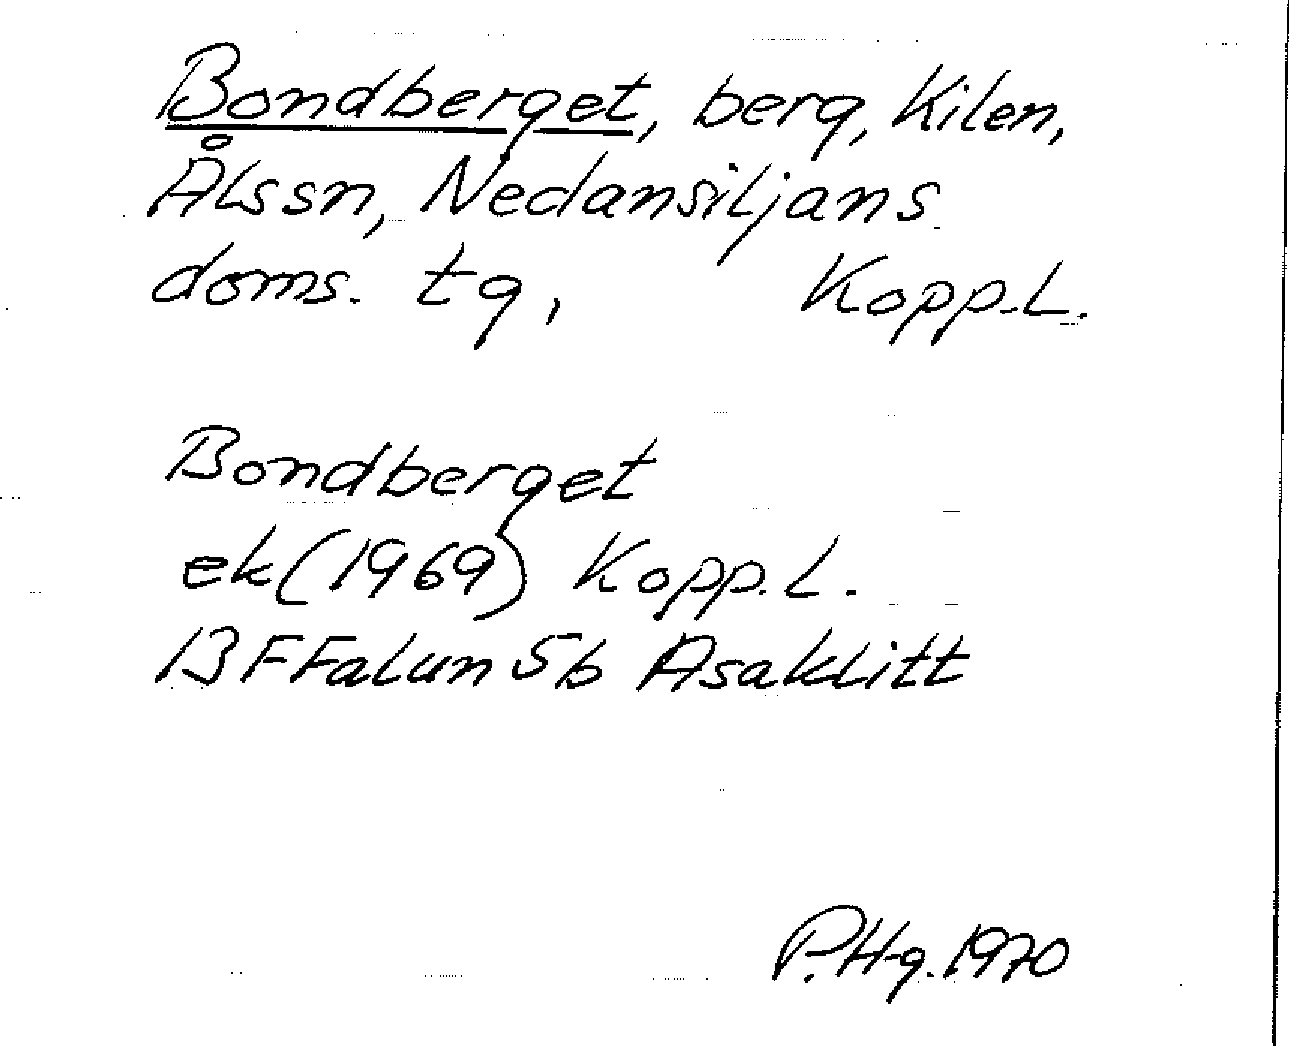 Bondberget, berg, Kilen,
Ålssn, Nedansiljans
doms. tg, Kopp.L.
Bondberget
ek(1969) Kopp.L.
13FFalun 5b Asaklitt
P.Hg.1970